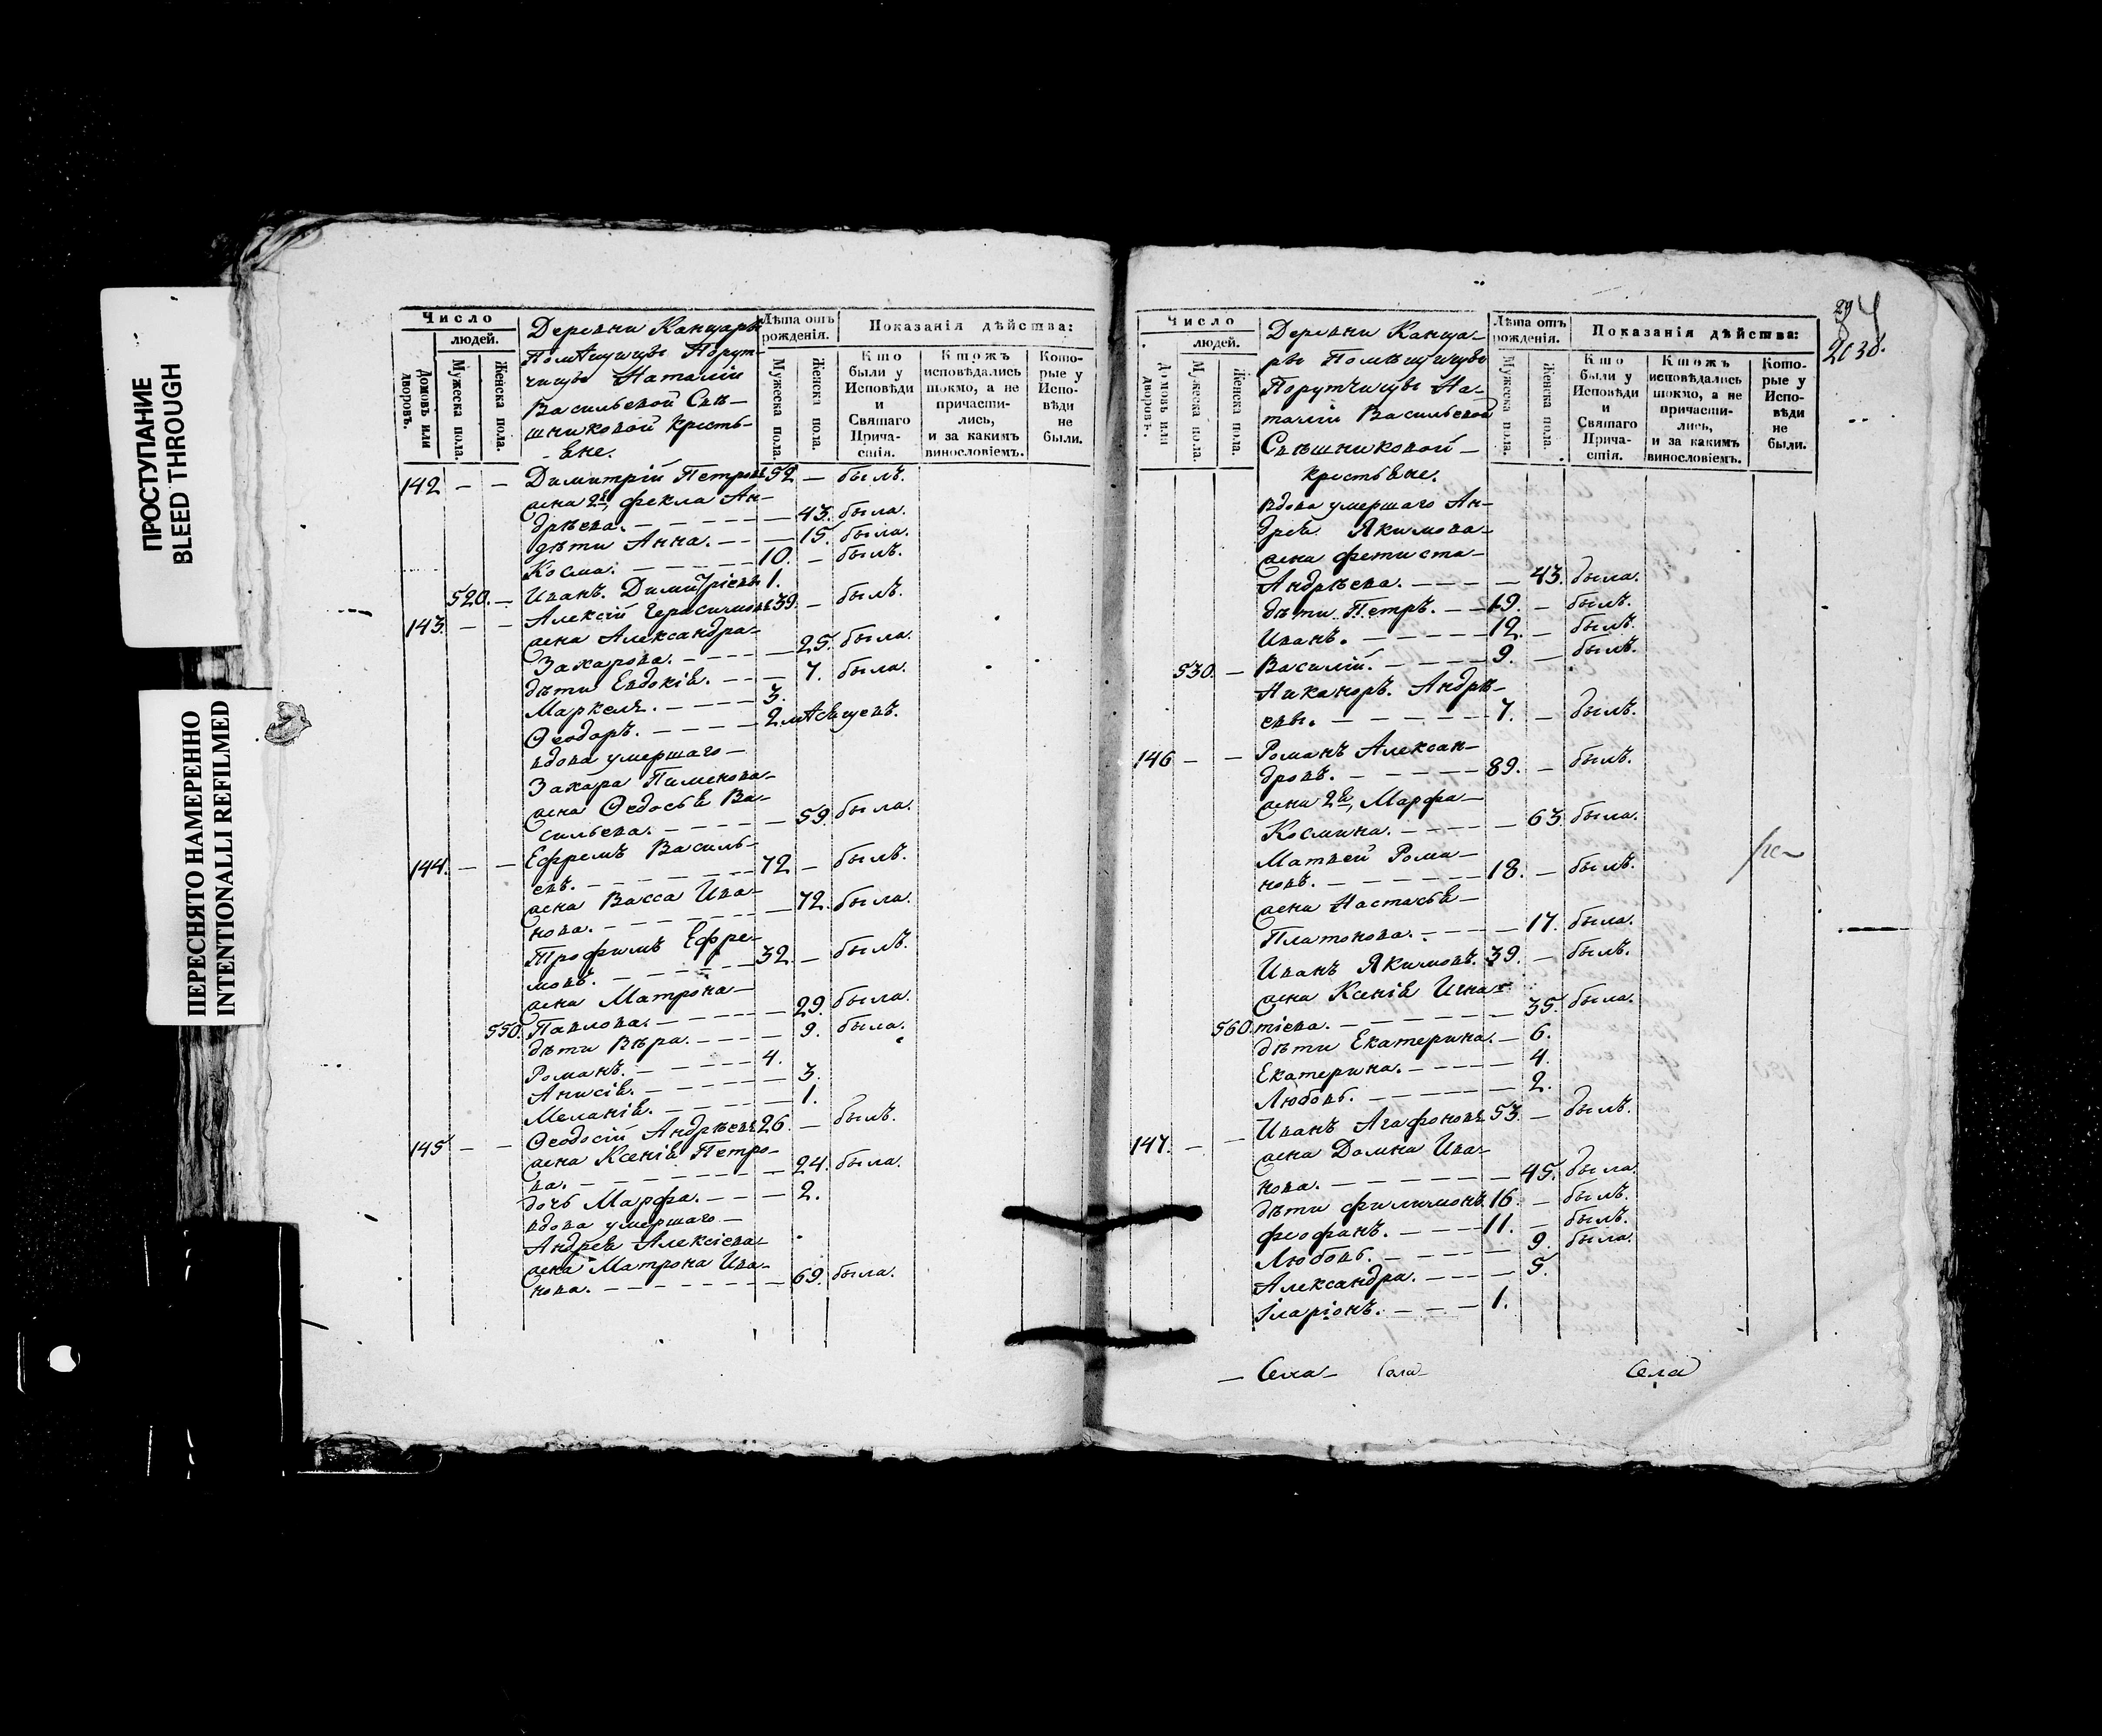 ПРОСТУПАНИЕ
BLEED THROUGH
ПЕРЕСНЯТО НАМЕРЕННО
INTENTIONALLI REFILMED
Число
людей.
Домовъ или дворовъ.
Мужеска пола.
Женска пола.
Деревни Канцары
Помѣщицы Порут-
чицы Наталіи
Васильевой Свѣ-
шниковой кресть-
яне.
Лѣта отъ рожденія.
Мужеска пола.
Женска пола.
Показанія дѣйства:
Кто были у Исповѣди и Святаго Прича-стія.
Ктожъ исповѣдались токмо, а не причасти-лись, и за какимъ винословіемъ.
Кото-рые у Испо-вѣди не были.
142 — — Димитрій Петровъ 52 — былъ.
жена 2я, Фекла Ан-
дрѣева. — 43. была.
дѣти Анна. — 15. была.
Косма. 10. — былъ.
520. — Иванъ. Димитріевы 1.
143. — — Алексій Герасимовъ 39. — былъ.
жена Александра
Захарова. — 25. была.
дѣти Евдокія. — 7. была.
Маркелъ. 3.
Ѳеодоръ. 2 мѣсяцевъ.
вдова умершаго
Захара Пименова
жена Ѳедосья Ва-
сильева. — 59. была.
144. — — Ефремъ Василь-
евъ. 72 — былъ.
жена Васса Ива-
нова. — 72. была.
Трофимъ Ефре-
мовъ. 32. — былъ.
жена Матрона
550. Павлова. — 29. была.
дѣти Вѣра. — 9. была.
Романъ. 4.
Анисія. — 3.
Меланія. — 1.
145 — — Ѳеодосій Андрѣевъ 26. — былъ.
жена Ксенія Петро-
ва. — 24. была.
дочь Марфа. — 2.
вдова умершаго
Андрея Алексіева
жена Матрона Ива-
нова. — 69. была.
29
2038.
Число
людей.
Домовъ или дворовъ.
Мужеска пола.
Женска пола.
Деревни Канца-
ры Помѣщицы
Порутчицы На-
таліи Васильевой
Свѣшниковой
крестьяне.
Лѣта отъ рожденія.
Мужеска пола.
Женска пола.
Показанія дѣйства:
Кто были у Исповѣди и Святаго Прича-стія.
Ктожъ исповѣдались токмо, а не причасти-лись, и за какимъ винословіемъ.
Кото-рые у Испо-вѣди не были.
вдова умершаго Ан-
дрея Якимова
жена Фетиста
Андрѣева. — 43. была.
дѣти Петръ. 19. — былъ.
Иванъ. 12. — былъ.
530. — Василій. 9. — былъ.
Никаноръ. Андрѣ-
евы. 7. — былъ.
146 — — Романъ Алексан-
дровъ. 89. — былъ.
жена 2я, Марфа
Космина. — 63 была.
Матвей Рома-
новъ. 18. — былъ.
жена Настасья
Платонова. — 17. была.
Иванъ Якимовъ. 39. — былъ.
жена Ксенія Игна-
560. тіева. — 35. была.
дѣти Екатерина. — 6.
Екатерина. — 4.
Любовь. — 2.
147. — — Иванъ Агафоновъ 53. — былъ.
жена Домна Ива-
нова. — 45. была.
дѣти Филимонъ. 16. — былъ.
Феофанъ. 11. — былъ.
Любовь. — 9. была.
Александра. — 5.
Іларіонъ. 1.
— Села Села Села